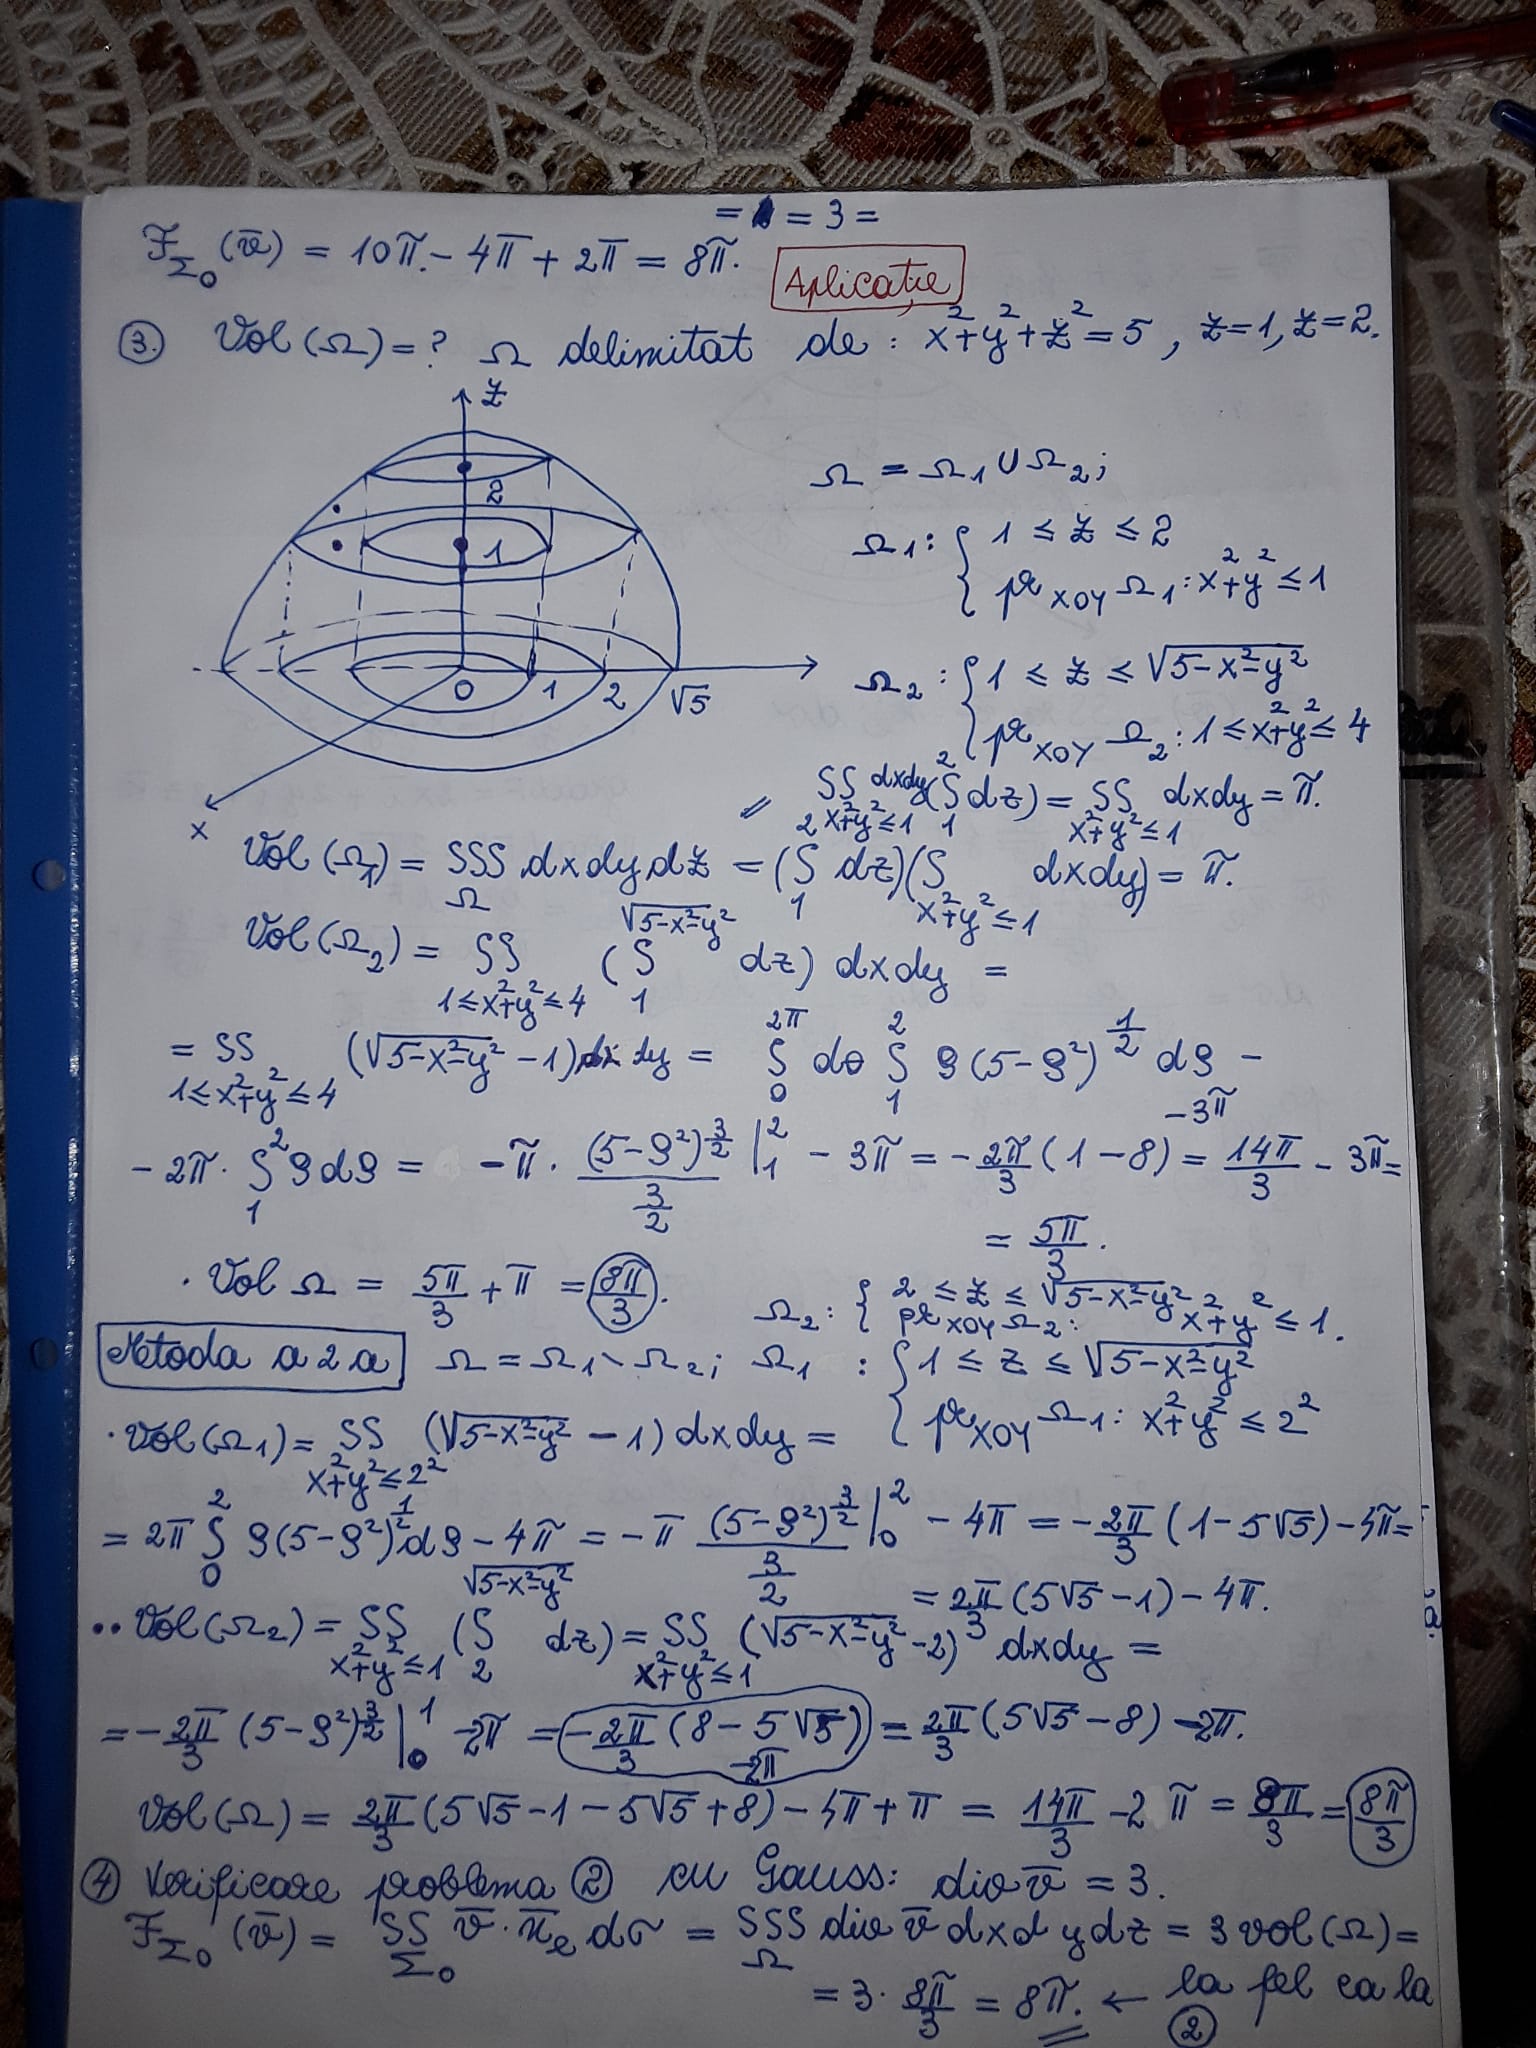 = = 3 =
F_Σ₀(v̄) = 10π. − 4π + 2π = 8π.
Aplicație
③. Vol(Ω) = ? Ω delimitat de : x²+y²+z² = 5 , z=1, z=2.
z
2
1
0 1 2 √5
x
Ω = Ω₁ ∪ Ω₂ ;
Ω₁ : { 1 ≤ z ≤ 2
pr_XOY Ω₁ : x²+y² ≤ 1
Ω₂ : { 1 ≤ z ≤ √(5−x²−y²)
pr_XOY Ω₂ : 1 ≤ x²+y² ≤ 4
= ∫∫_{x²+y²≤1} dxdy (∫₁² dz) = ∫∫_{x²+y²≤1} dxdy = π.
Vol(Ω₁) = ∫∫∫_Ω dxdydz = (∫₁² dz)(∫_{x²+y²≤1} dxdy) = π.
Vol(Ω₂) = ∫∫_{1≤x²+y²≤4} (∫₁^{√(5−x²−y²)} dz) dxdy =
= ∫∫_{1≤x²+y²≤4} (√(5−x²−y²) − 1) dxdy = ∫₀^{2π} dθ ∫₁² ρ(5−ρ²)^{1/2} dρ −
−3π
− 2π · ∫₁² ρdρ = −π · (5−ρ²)^{3/2} / (3/2) |₁² − 3π = −2π/3 (1−8) = 14π/3 − 3π =
= 5π/3 .
· Vol Ω = 5π/3 + π = 8π/3 .
Ω₂ : { 2 ≤ z ≤ √(5−x²−y²)
pr_XOY Ω₂ : x²+y² ≤ 1.
Metoda a 2 a Ω = Ω₁ \ Ω₂ ; Ω₁ : { 1 ≤ z ≤ √(5−x²−y²)
pr_XOY Ω₁ : x²+y² ≤ 2²
· Vol(Ω₁) = ∫∫_{x²+y²≤2²} (√(5−x²−y²) − 1) dxdy =
= 2π ∫₀² ρ(5−ρ²)^{1/2} dρ − 4π = −π (5−ρ²)^{3/2} / (3/2) |₀² − 4π = −2π/3 (1−5√5) − 4π =
= 2π/3 (5√5−1) − 4π.
·· Vol(Ω₂) = ∫∫_{x²+y²≤1} (∫₂^{√(5−x²−y²)} dz) = ∫∫_{x²+y²≤1} (√(5−x²−y²) −2) dxdy =
= −2π/3 (5−ρ²)^{3/2} |₀¹ −2π = −2π/3 (8−5√5) −2π = 2π/3 (5√5−8) −2π.
Vol(Ω) = 2π/3 (5√5−1−5√5+8) − 4π + π = 14π/3 −2 π = 8π/3 = 8π/3
④ Verificare problema ② cu Gauss: div v̄ = 3.
F_Σ₀(v̄) = ∫∫_Σ₀ v̄ · n̄ₑ dσ = ∫∫∫_Ω div v̄ dxdydz = 3 vol(Ω) =
= 3 · 8π/3 = 8π. ← la fel ca la
②